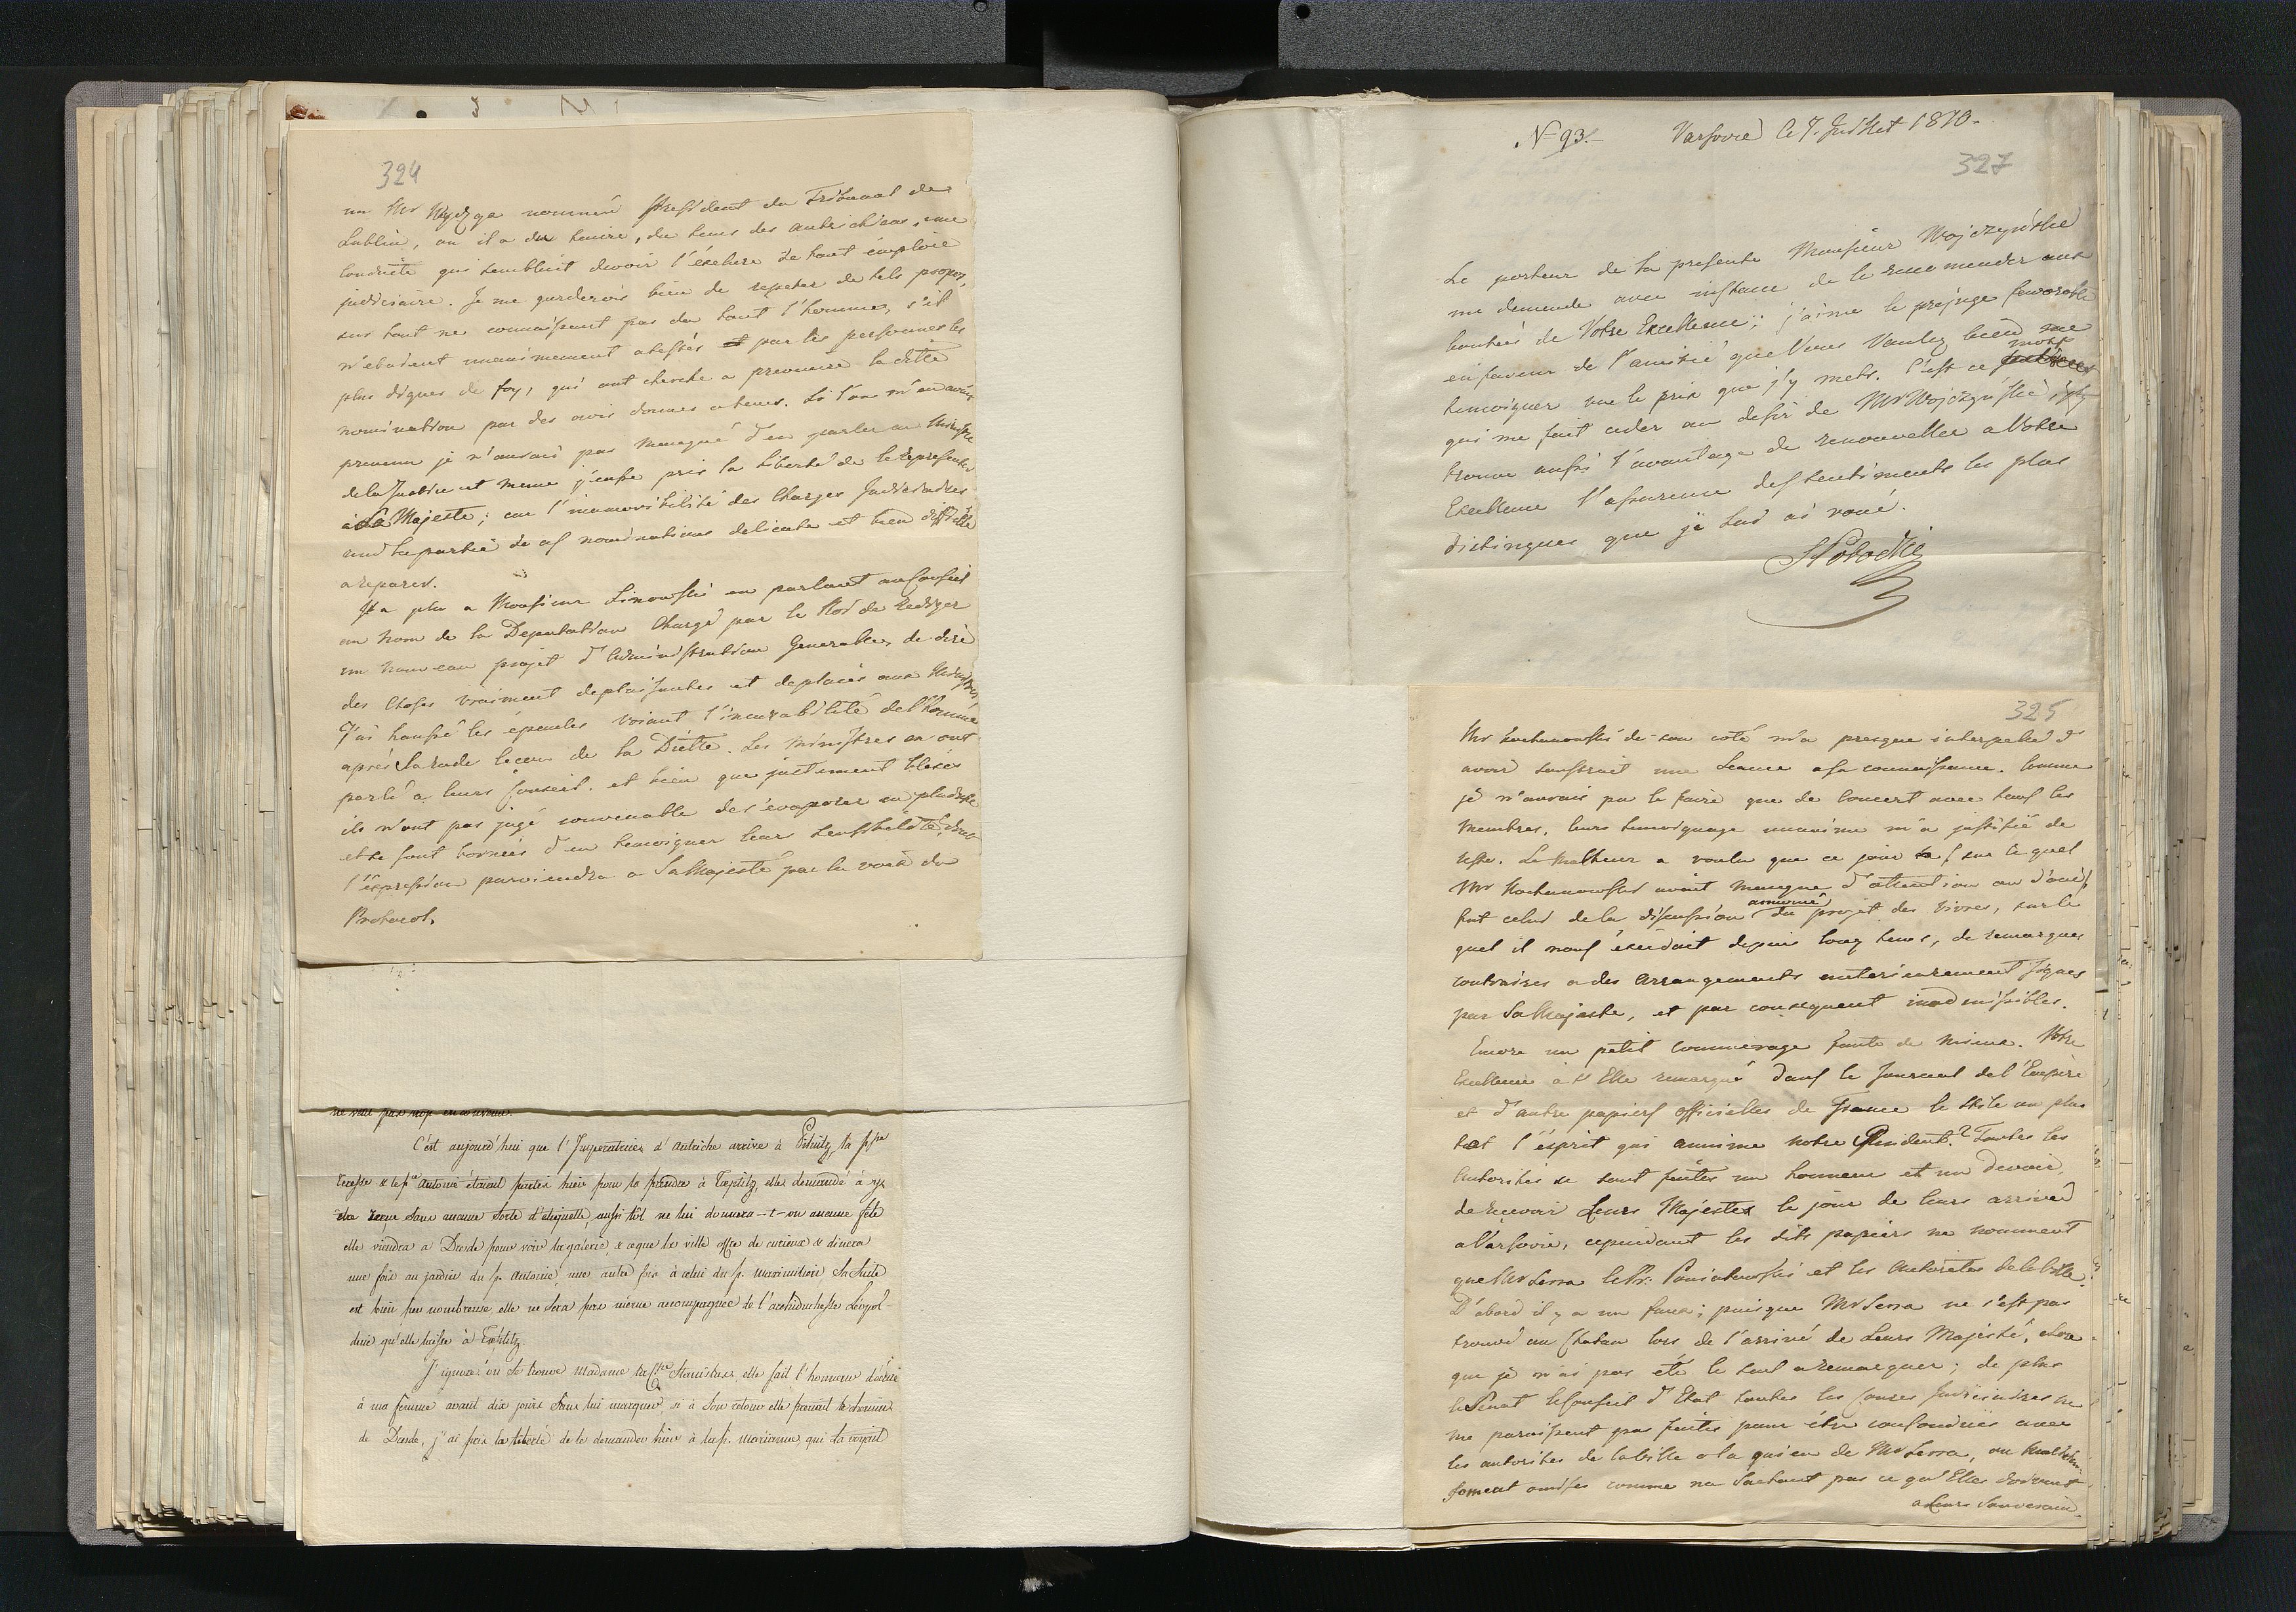 324
un Mr Wydzga nommé President du Tribunal de
Lublin, ou il a du tenire, du tems des autrichiens, une
conduite qui sembleroit devoir l'exclure de tout emploie
judiciaire. Je me garderois bien de repeter de tels propos,
sur tout ne connaissant pas du tout l'homme, s'ils
n'etoient unanimement atestés par les personnes les
plus dignes de foy, qui ont cherché a prevenir la dite
nomination par des avis donnés a tems. Si l'on m'en avoit
prevenu je n'aurais pas manqué d'en parler au Ministre
de la Justice et meme j'eusse pris la liberté de le representer
à Sa Majesté; car l'inamovibilité des Charges Judiciaires
rend la partie de ces nominations delicate et bien difficile
a reparer.
Il a plu a Monsieur Linowski en parlant au Conseil
au nom de la Deputation chargé par le Roi de rediger
un nouveau projet d'administration Generale, de dire
des choses vraiment deplaisantes et deplacés aux Ministres
J'ai haussé les épaules voiant l'incurabilité de l'homme
aprés la rude lecon de la Diette. Les Ministres en ont
parlé a leurs Conseil. et bien que justement blesés
ils n'ont pas jugé convenable de s'evaporer en
et se sont bornés d'en temoigner leur sensibilité, dont
l'expression parviendra a Sa Majesté par la voie du
Protocol.
ne
C'est aujourd'hui que l'Imperatrice d'Autriche arrive à Pilnitz, la psse
Terese & le pce Antoine étaient partis hier pour la prendre à Toeplitz, elle demande à y
etre reçue sans aucune sorte d'etiquette, aussi tôt ne lui donnera-t-on aucune fête
elle viendra a Dresde pour voir la galerie, & ce que la ville offre de curieux & dinera
une fois au jardin du p. Antoine, une autre fois à celui du p. Maximilien Sa Suite
est bien peu nombreuse, elle ne sera pas même accompagnée de l'archiduchesse Léopol-
dine qu'elle laisse à Toeplitz.
J'ignore où se trouve Madame la Ctesse Stanislas, elle fait l'honneur d'écrire
à ma femme avant dix jours sans lui marquer, si à son retour elle prenait le chemin
de Dresde, j'ai pris la liberté de le demander hier à la p. Marianne, qui la croyait
N=93.- Varsovie le 7. Juillet 1810.
327
Le porteur de la presente Monsieur Wojczynski
me demande avec instance de le recommender aux
bontés de Votre Excellence; j'aime le prejuge favorable
en faveur de l'amitié que Vous Voulez bien me
temoigner vue le prix que j'y mets. C'est ce motif
qui me fait ceder au desir de Mr Wojczynski, j'y
trouve aussi l'avantage de renouveller a Votre
Excellence l'assurence des sentiments les plus
distingues que je lui ai voué.
SPotocki
325
Mr Kochanowski de son coté m'a presque interpellé d'
avoir soustrait une seance a sa connaissance. Comme
je n'aurais pu le faire que de concert avec tous les
membres, leurs temoignage unanime m'a justifié de
reste. Le malheur a voulu que ce jour sur le quel
Mr Kochanowski avoit manqué d'attention ou d'ouïe,
fut celui de la discussion du projet des vivres, sur le
quel il nous excédoit depuis long tems, de remarques
contraires a des arrangements anterieurement signés
par Sa Majeste, et par consequent inadmissibles.
Encore un petit commerage faute de mieux. Votre
Excellence a t'Elle remarqué dans le Journal de l'Empire
et d'autre papiers officielles de France le stile ou plus
tot l'esprit qui annime notre Resident? Toutes les
Autorités se sont faites un honneur et un devoir,
de recevoir Leurs Majestes le jour de leurs arrivée
a Varsovie, cependant les dits papiers ne nomment
que Mr Serra le Pr: Poniatowski et les Autorités de la Ville.
D'abord il y a un faux; puisque Mr Serra ne s'est pas
trouvé au Chateau lors de l'arrivé de Leurs Majesté, chose
que je n'ai pas été le seul a remarquer; de plus
le Senat le Conseil d'Etat toutes les Courses Judiciaires ne
me paraissent pas faites pour être confondues avec
les autorites de la ville a la queu de Mr Serra, ou
omises comme ne sachant pas ce qu'Elles doivent
a Leurs Souverain.